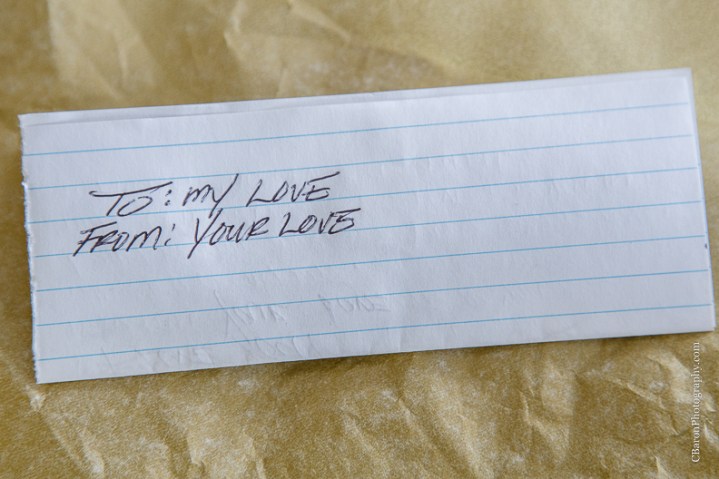 TO: MY LOVE
FROM: YOUR LOVE
CBaronPhotography.com